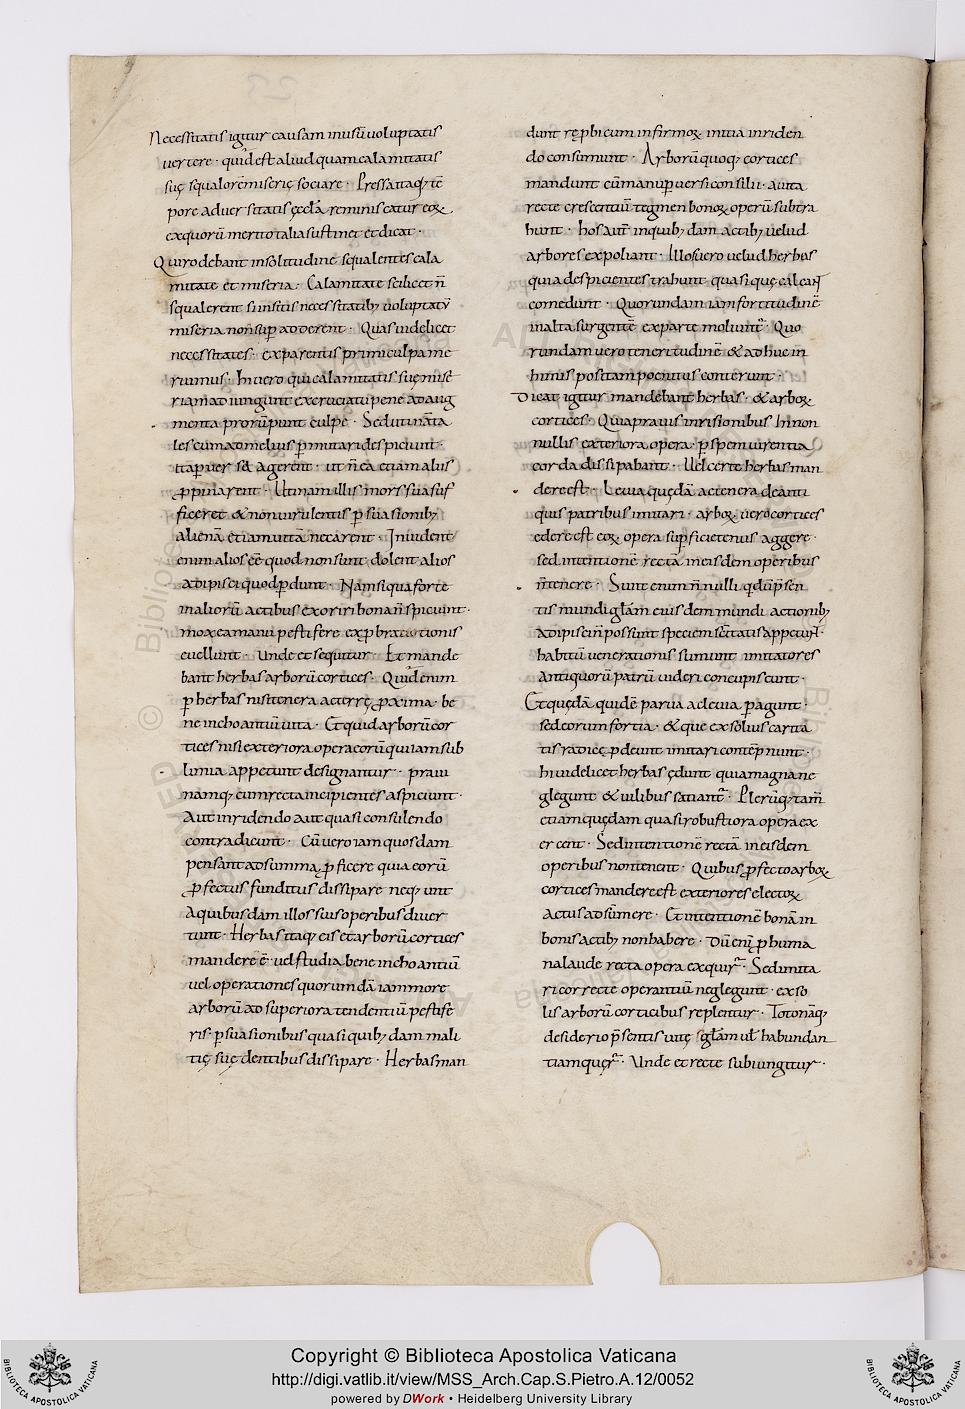 Necessitatis igitur causam in usū uoluptatis
uertere · quid est aliud quam calamitatis
suę squalorē miserię sociare · Pressa itaq; tē
pore aduersitatis ęcclā reminiscatur eoꝝ
ex quorū merito talia sustinet et dicat ·
Qui rodebant in solitudine squalentes cala
mitate et miseria · Calamitate scilicet n̄
squalerent si institis necessitatib; uoluptatū
miseria non suꝑ adderent · Quas uidelicet
necessitates · ex parentis primi culpa me
ruimus · Hi uero qui calamitatis suę mise
riam adiungunt ex cruciatu pene ad aug
menta prorūpunt culpe · Sed utinā ta
les cum ad melius ꝑmutari despiciunt ·
ita ꝑuersa agerent · ut n̄ ea etiam aliis
ꝓpinarent · Utinam illis mors sua suf
ficeret & non uirulentis ꝑsuasionib;
alienā etiam uitā necarent · Inuident
enim alios eē quod non sunt · dolent alios
adipisci quod ꝑdunt · Nam si qua forte
in aliorū actibus exoriri bona n̄spiciunt ·
mox ea manu pestifere exprobrationis
euellunt · Unde et sequitur · Et mande
bant herbas arborū cortices · Quid enim
ꝑ herbas nisi tenera ac terrę ꝓxima · be
ne inchoantiū uita · Et quid arborū cor
tices nisi exteriora opera eorū qui iam sub
limia appetunt designantur · praui
namq; cum recta incipientes aspiciunt ·
Aut inridendo aut quasi consulendo
contradicunt · Cū uero iam quosdam
pensant ad summa ꝓficere quia eorū
ꝓfectus funditus dissipare nequeunt
a quibusdam illos suis operibus diuer
tunt · Herbas itaq; eis et arborū cortices
mandere ē · uel studia bene inchoantiū
uel operationes quorumdā iam more
arborū ad superiora tendentiū pestife
ris ꝑsuasionibus quasi quib;dam mali
tię suę dentibus dissipare · Herbas man
dunt rę̄phi cum infirmoꝝ initia inriden
do consumunt · Arborū quoq; cortices
mandunt cū manu ꝑuersi consilii · a uita
recte crescentiū tegmen bonoꝝ operū subtra
hunt · hos aut̄ in quib;dam actib; uelud
arbores expoliant · Illos uero uelud herbas
quia despicientes trahunt quasi quę calcant̄
comedunt · Quorundam iam fortitudinē
in alta surgentē ex parte molunt̄ · Quo
rundam uero teneritudinē & adhuc in
himis positam poenitus conterunt ·
Dicat igitur mandebant herbas · & arboꝝ
cortices · Quia prauis inrisionibus in non
nullis exteriora opera · ꝑ spem uirentia
corda dissipabant · Uel certe herbas man
dere est · Leuia quędā ac tenera de anti
quis patribus imitari · arboꝝ uero cortices
edere est eoꝝ opera suꝑficietenus aggere ·
sed intentionē rectā in eisdem operibus
n̄ tenere · Sunt enim n̄nulli q̄ dū p̄sen
tis mundi glām eiusdem mundi actionib;
adipisci n̄ possunt speciem scītatis appetunt ·
habitū uenerationis sumunt imitatores
antiquorū patrū uideri concupiscunt ·
Et quędā quidē parua ac leuia ꝑagunt ·
sed eorum fortia · & que ex solius carita
tis radice ꝓdeunt imitari contēpnunt ·
hi uidelicet herbas ędunt quia magna ne
glegunt & uilibus satiant̄ · Plerūq; tam̄
etiam quędam quasi robustiora opera ex
ercent · Sed intentionē rectā in eisdem
operibus non tenent · Quibus ꝓfecto arboꝝ
cortices mandere est exteriores electoꝝ
actus adsūmere · Et intentionē bonā in
bonis actib; non habere · Dū eni ꝑ huma
na laude recta opera exquir̄ · Sed uita
ri cor recte operantiū neglegunt · ex so
lis arborū corticibus replentur · Toto nāq;
desiderio p̄sentis uitę s; glām uel habundan
tiam quęr̄ · Unde et recte subiungitur ·
Copyright © Biblioteca Apostolica Vaticana
http://digi.vatlib.it/view/MSS_Arch.Cap.S.Pietro.A.12/0052
powered by DWork • Heidelberg University Library